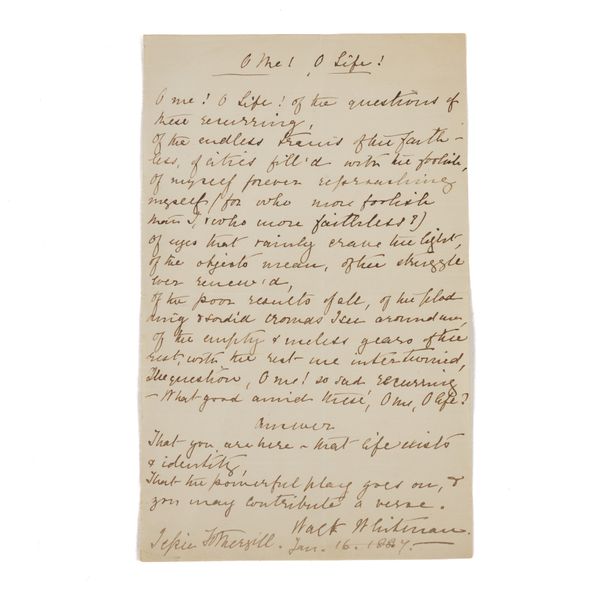 O Me! O Life!
O me! O Life! of the questions of
these recurring,
of the endless trains of the faith-
less, of cities fill'd with the foolish,
of myself forever reproaching
myself, (for who more foolish
than I, & who more faithless?)
of eyes that vainly crave the light,
of the objects mean, of the struggle
ever renew'd,
of the poor results of all, of the plod
ding & sordid crowds I see around me,
of the empty & useless years of the
rest, with the rest me intertwined,
The question, O me! so sad recurring
- What good amid these, O me, O life?
Answer
That you are here - that life exists
& identity,
That the powerful play goes on, &
you may contribute a verse.
Walt Whitman.
Jessie Fothergill. Jan. 16. 1887.-